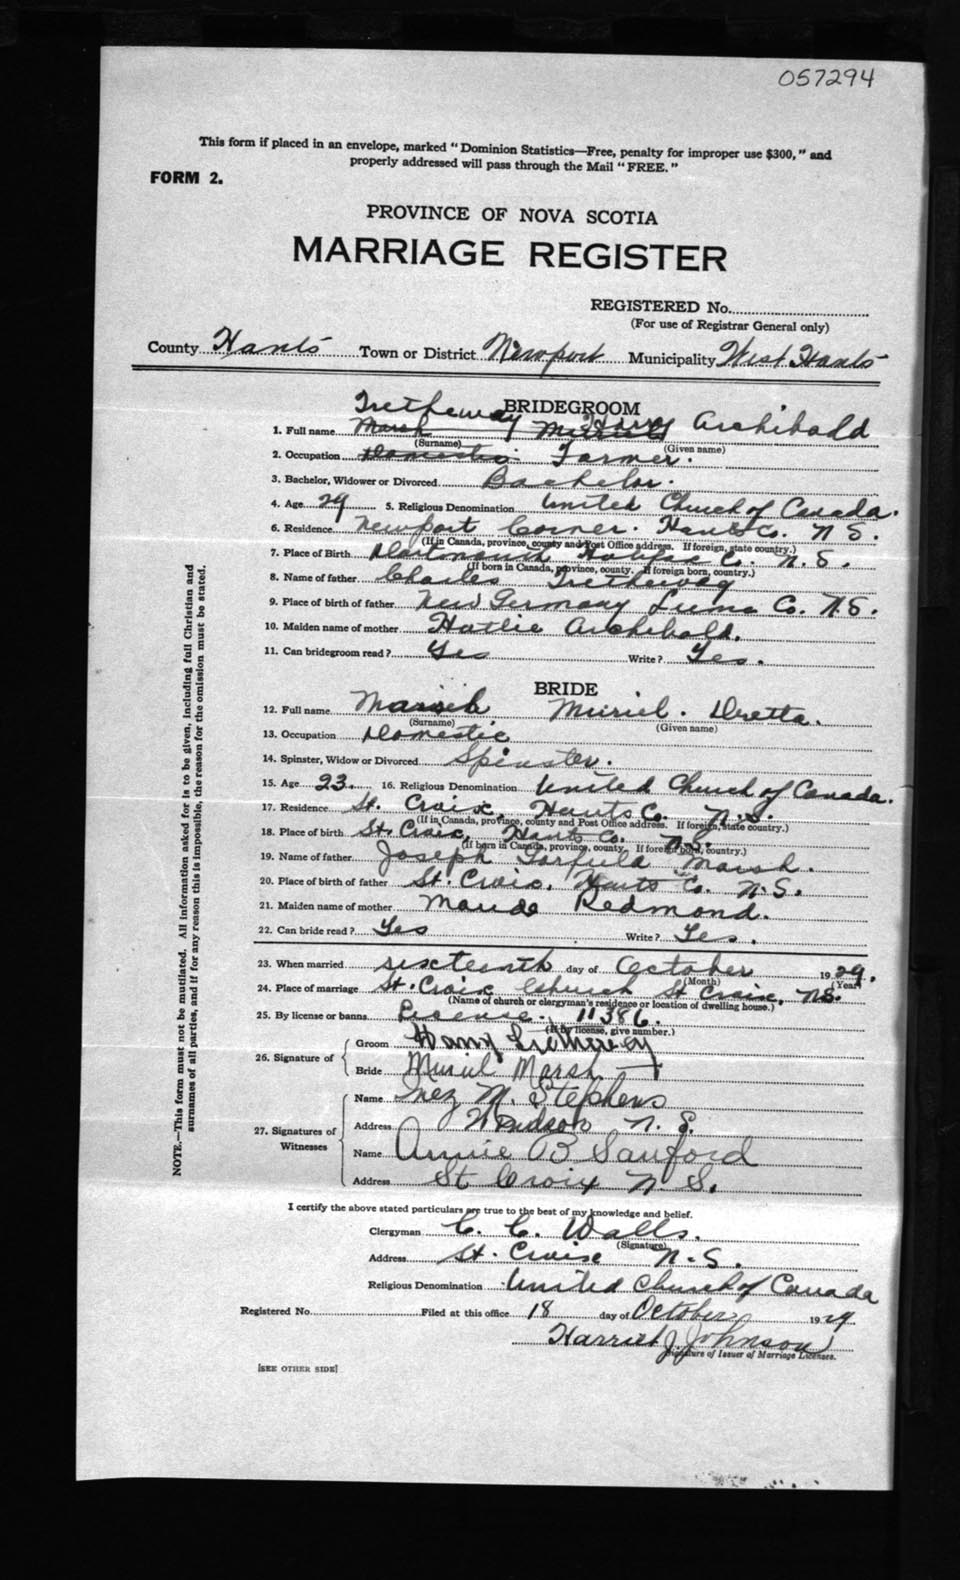 057294
This form if placed in an envelope, marked "Dominion Statistics—Free, penalty for improper use $300," and
properly addressed will pass through the Mail "FREE."
FORM 2.
PROVINCE OF NOVA SCOTIA
MARRIAGE REGISTER
REGISTERED No.
(For use of Registrar General only)
County Hants Town or District Newport Municipality West Hants
BRIDEGROOM
Tretheway Harry Archibald
1. Full name Marsh
(Surname) (Given name)
2. Occupation Domestic Farmer.
3. Bachelor, Widower or Divorced Bachelor.
4. Age 29 5. Religious Denomination United Church of Canada.
6. Residence Newport Corner. Hants Co. N S.
(If in Canada, province, county and Post Office address. If foreign, state country.)
7. Place of Birth Dartmouth Halifax Co. N. S.
(If born in Canada, province, county. If foreign born, country.)
8. Name of father Charles Tretheway
9. Place of birth of father New Germany Lunn Co. N.S.
10. Maiden name of mother Hattie Archibald.
11. Can bridegroom read? Yes Write? Yes.
BRIDE
12. Full name Marsh Muriel. Oretta.
(Surname) (Given name)
13. Occupation Domestic
14. Spinster, Widow or Divorced Spinster.
15. Age 23. 16. Religious Denomination United Church of Canada.
17. Residence St. Croix, Hants Co. N.S.
(If in Canada, province, county and Post Office address. If foreign, state country.)
18. Place of birth St. Croix, Hants Co. N.S.
(If born in Canada, province, county. If foreign born, country.)
19. Name of father Joseph Marsh.
20. Place of birth of father St. Croix. Hants Co. N.S.
21. Maiden name of mother Maude Redmond.
22. Can bride read? Yes Write? Yes.
23. When married sixteenth day of October 1929.
(Month) (Year)
24. Place of marriage St. Croix Church St Croix, N.S.
(Name of church or clergyman's residence or location of dwelling house.)
25. By license or banns License. 11386.
(If by license, give number.)
26. Signature of
Groom Harry Tretheway
Bride Muriel Marsh
27. Signatures of Witnesses
Name Inez M. Stephens
Address Windsor N. S.
Name Annie B Sanford
Address St Croix N S.
I certify the above stated particulars are true to the best of my knowledge and belief.
Clergyman C. C. Walls.
(Signature)
Address St. Croix N.S.
Religious Denomination United Church of Canada
Registered No. Filed at this office 18 day of October 1929
Harriet J. Johnson
Signature of Issuer of Marriage Licenses.
[SEE OTHER SIDE]
NOTE.—This form must not be mutilated. All information asked for is to be given, including full Christian and
surnames of all parties, and if for any reason this is impossible, the reason for the omission must be stated.